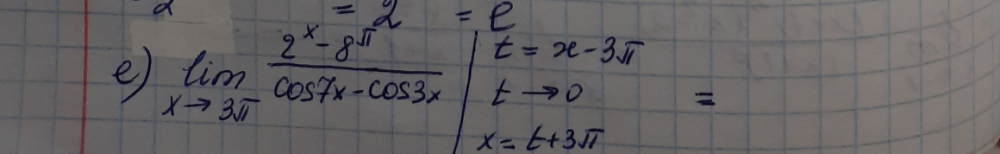 = 2 = e
e) lim x→3π (2^x - 8^π)/(cos7x - cos3x) | t = x - 3π
t → 0 =
x = t + 3π